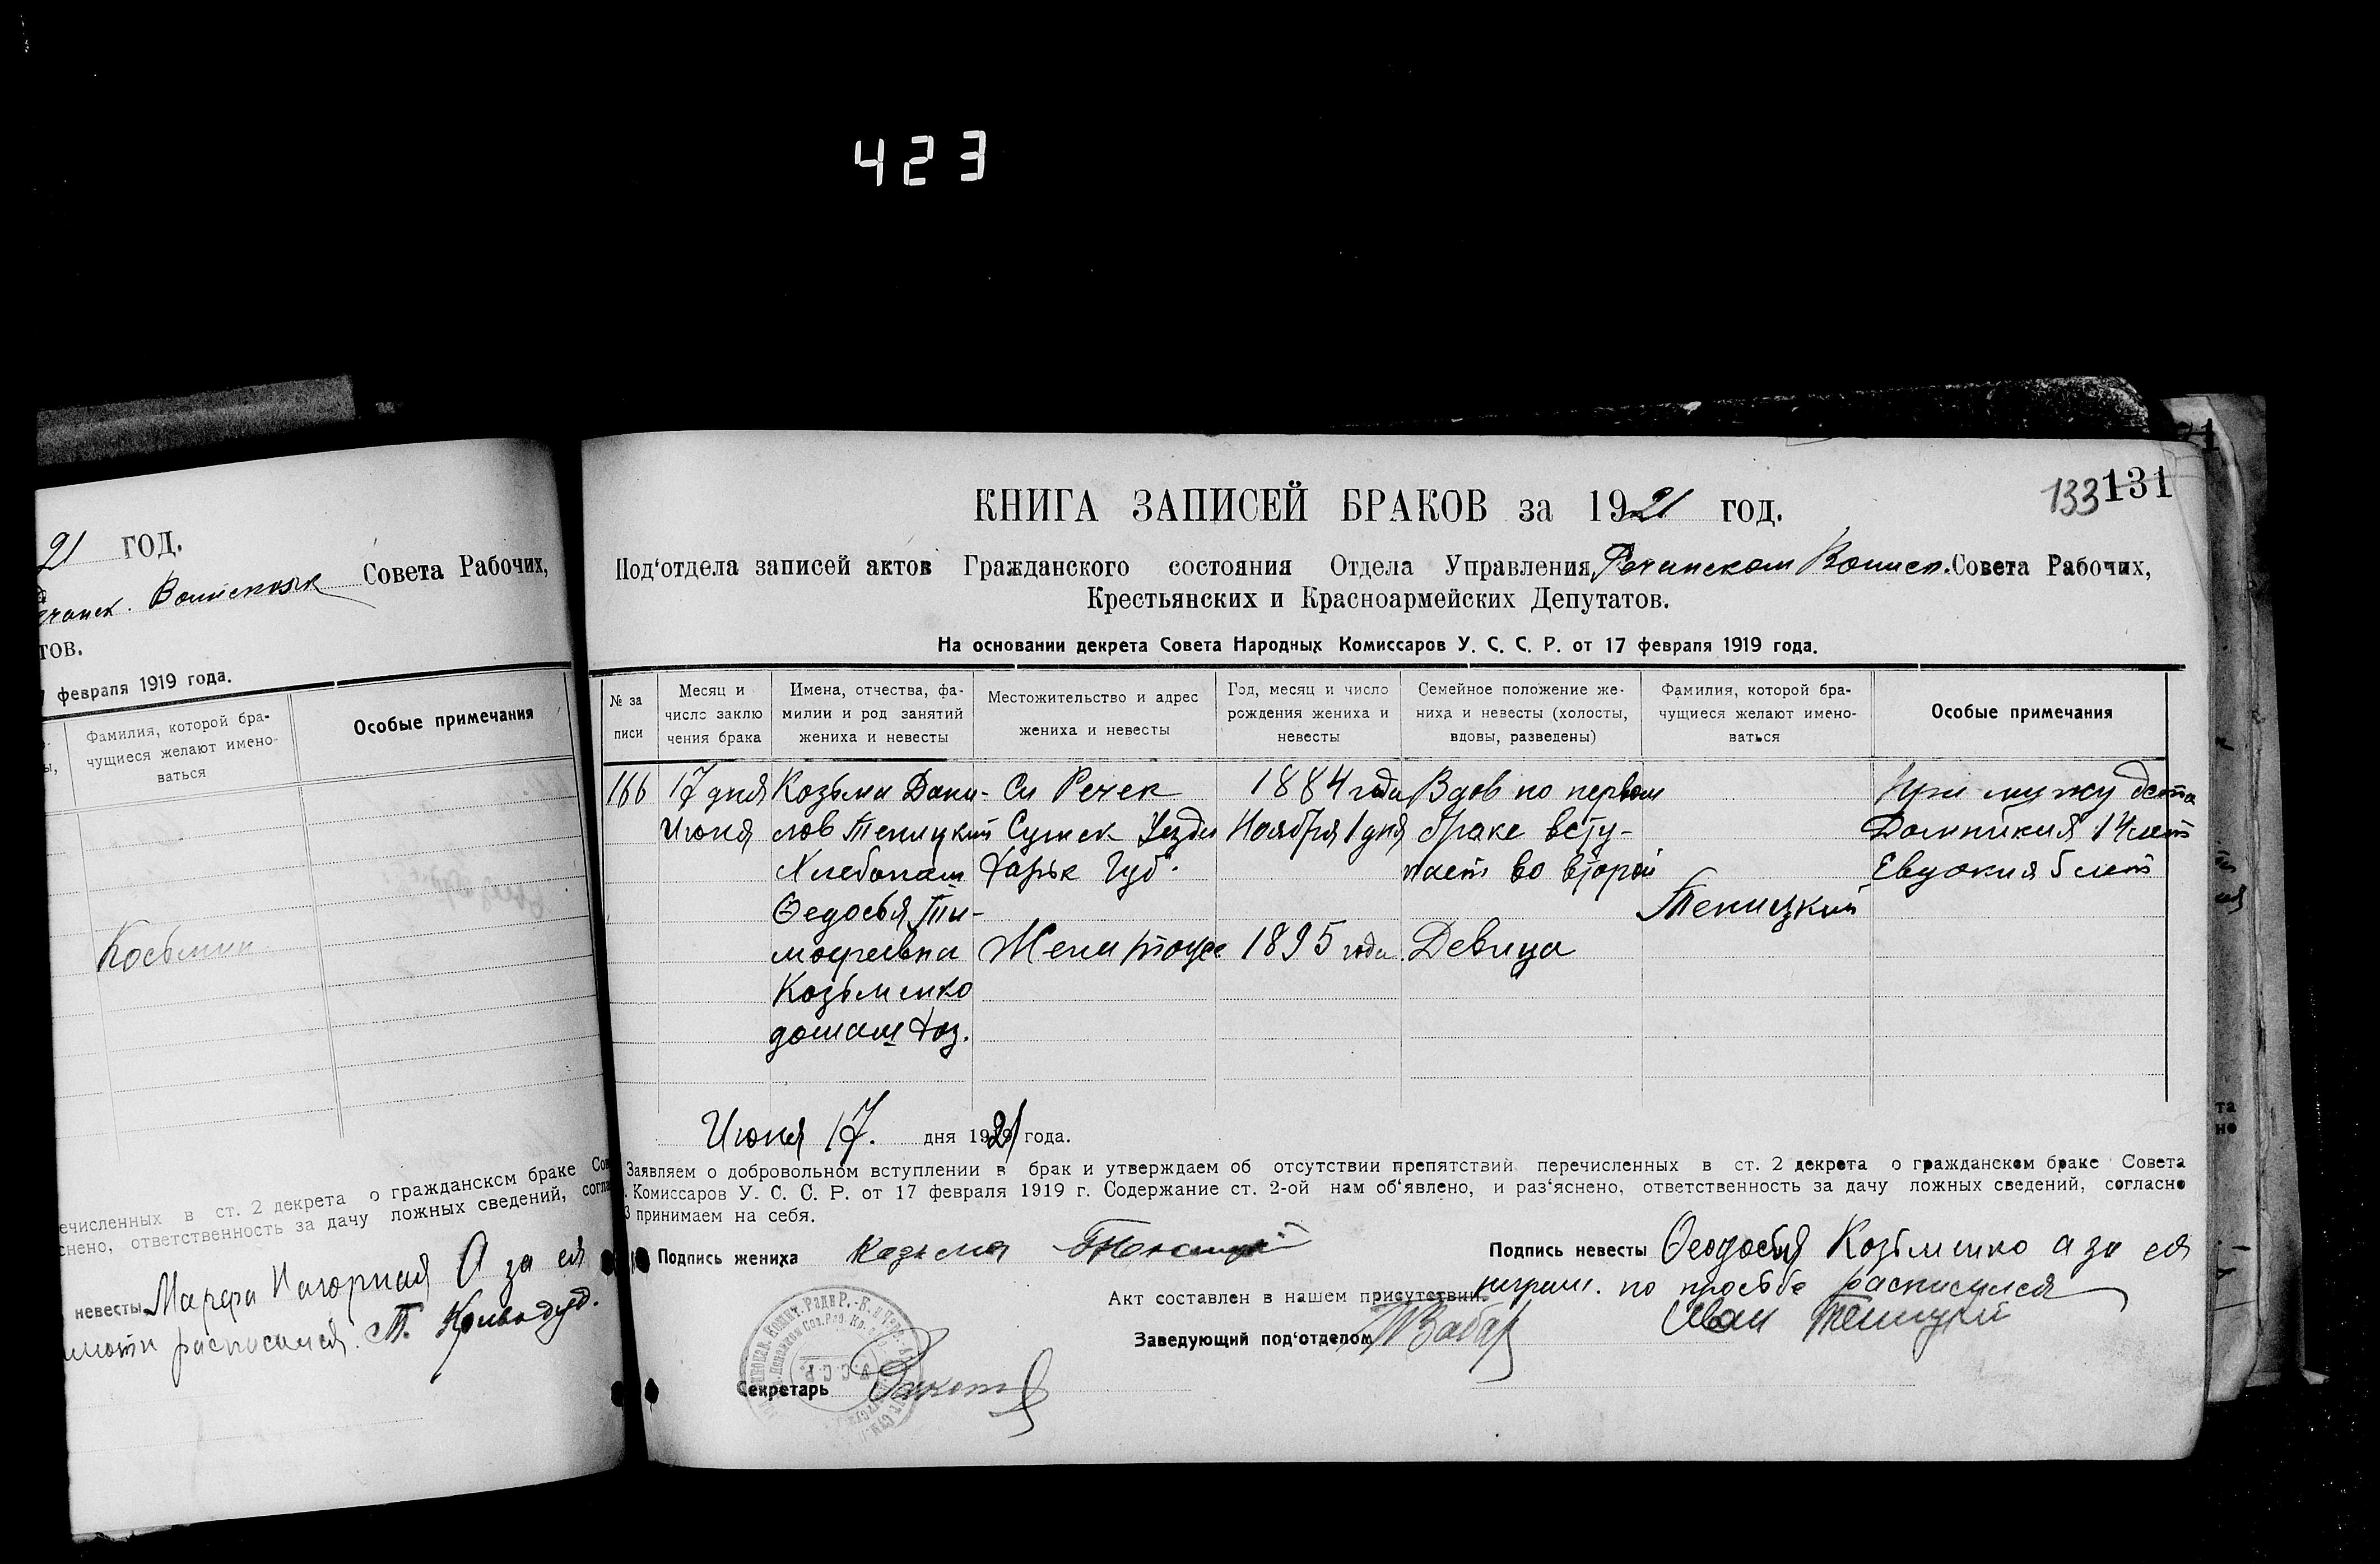 423
21 ГОД.
Волисполк Совета Рабочих,
тов.
февраля 1919 года.
Фамилия, которой бра-
чущиеся желают имено-
ваться
Особые примечания
Косьмин
ечисленных в ст. 2 декрета о гражданском браке Сов
снено, ответственность за дачу ложных сведений, согла
невесты Марфа Нагорная А за ея
расписался. Т.
133 131
КНИГА ЗАПИСЕЙ БРАКОВ за 1921 год.
Под‘отдела записей актов Гражданского состояния Отдела Управления Речанском Волисп. Совета Рабочих,
Крестьянских и Красноармейских Депутатов.
На основании декрета Совета Народных Комиссаров У. С. С. Р. от 17 февраля 1919 года.
№ за
писи
Месяц и
число заклю
чения брака
Имена, отчества, фа-
милии и род занятий
жениха и невесты
Местожительство и адрес
жениха и невесты
Год, месяц и число
рождения жениха и
невесты
Семейное положение же-
ниха и невесты (холосты,
вдовы, разведены)
Фамилия, которой бра-
чущиеся желают имено-
ваться
Особые примечания
166
17 дня
Июня
Козьма Дани-
лов Теницкий
Хлебопаш
Ѳедосья Ти-
мофеевна
Козьменко
домаш хоз.
Сл Речек
Сумск Уезда
Харьк Губ.
Жена тоже
1884 года
Ноября 1 дня
1895 года
Вдов по первом
браке всту-
пает во второй
Девица
Теницкий
При мужу дета
Домникия 14 лет
Евдокия 5 лет
Июня 17. дня 1921 года.
Заявляем о добровольном вступлении в брак и утверждаем об отсутствии препятствий перечисленных в ст. 2 декрета о гражданском браке Совета
. Комиссаров У. С. С. Р. от 17 февраля 1919 г. Содержание ст. 2-ой нам об‘явлено, и раз‘яснено, ответственность за дачу ложных сведений, согласно
3 принимаем на себя.
Подпись жениха Козьма Теницкий
Подпись невесты Ѳеодосия Козьменко а за ея
по просьбе расписался
Иван Теницкий
Акт составлен в нашем присутствии.
Заведующий под‘отделом
Секретарь